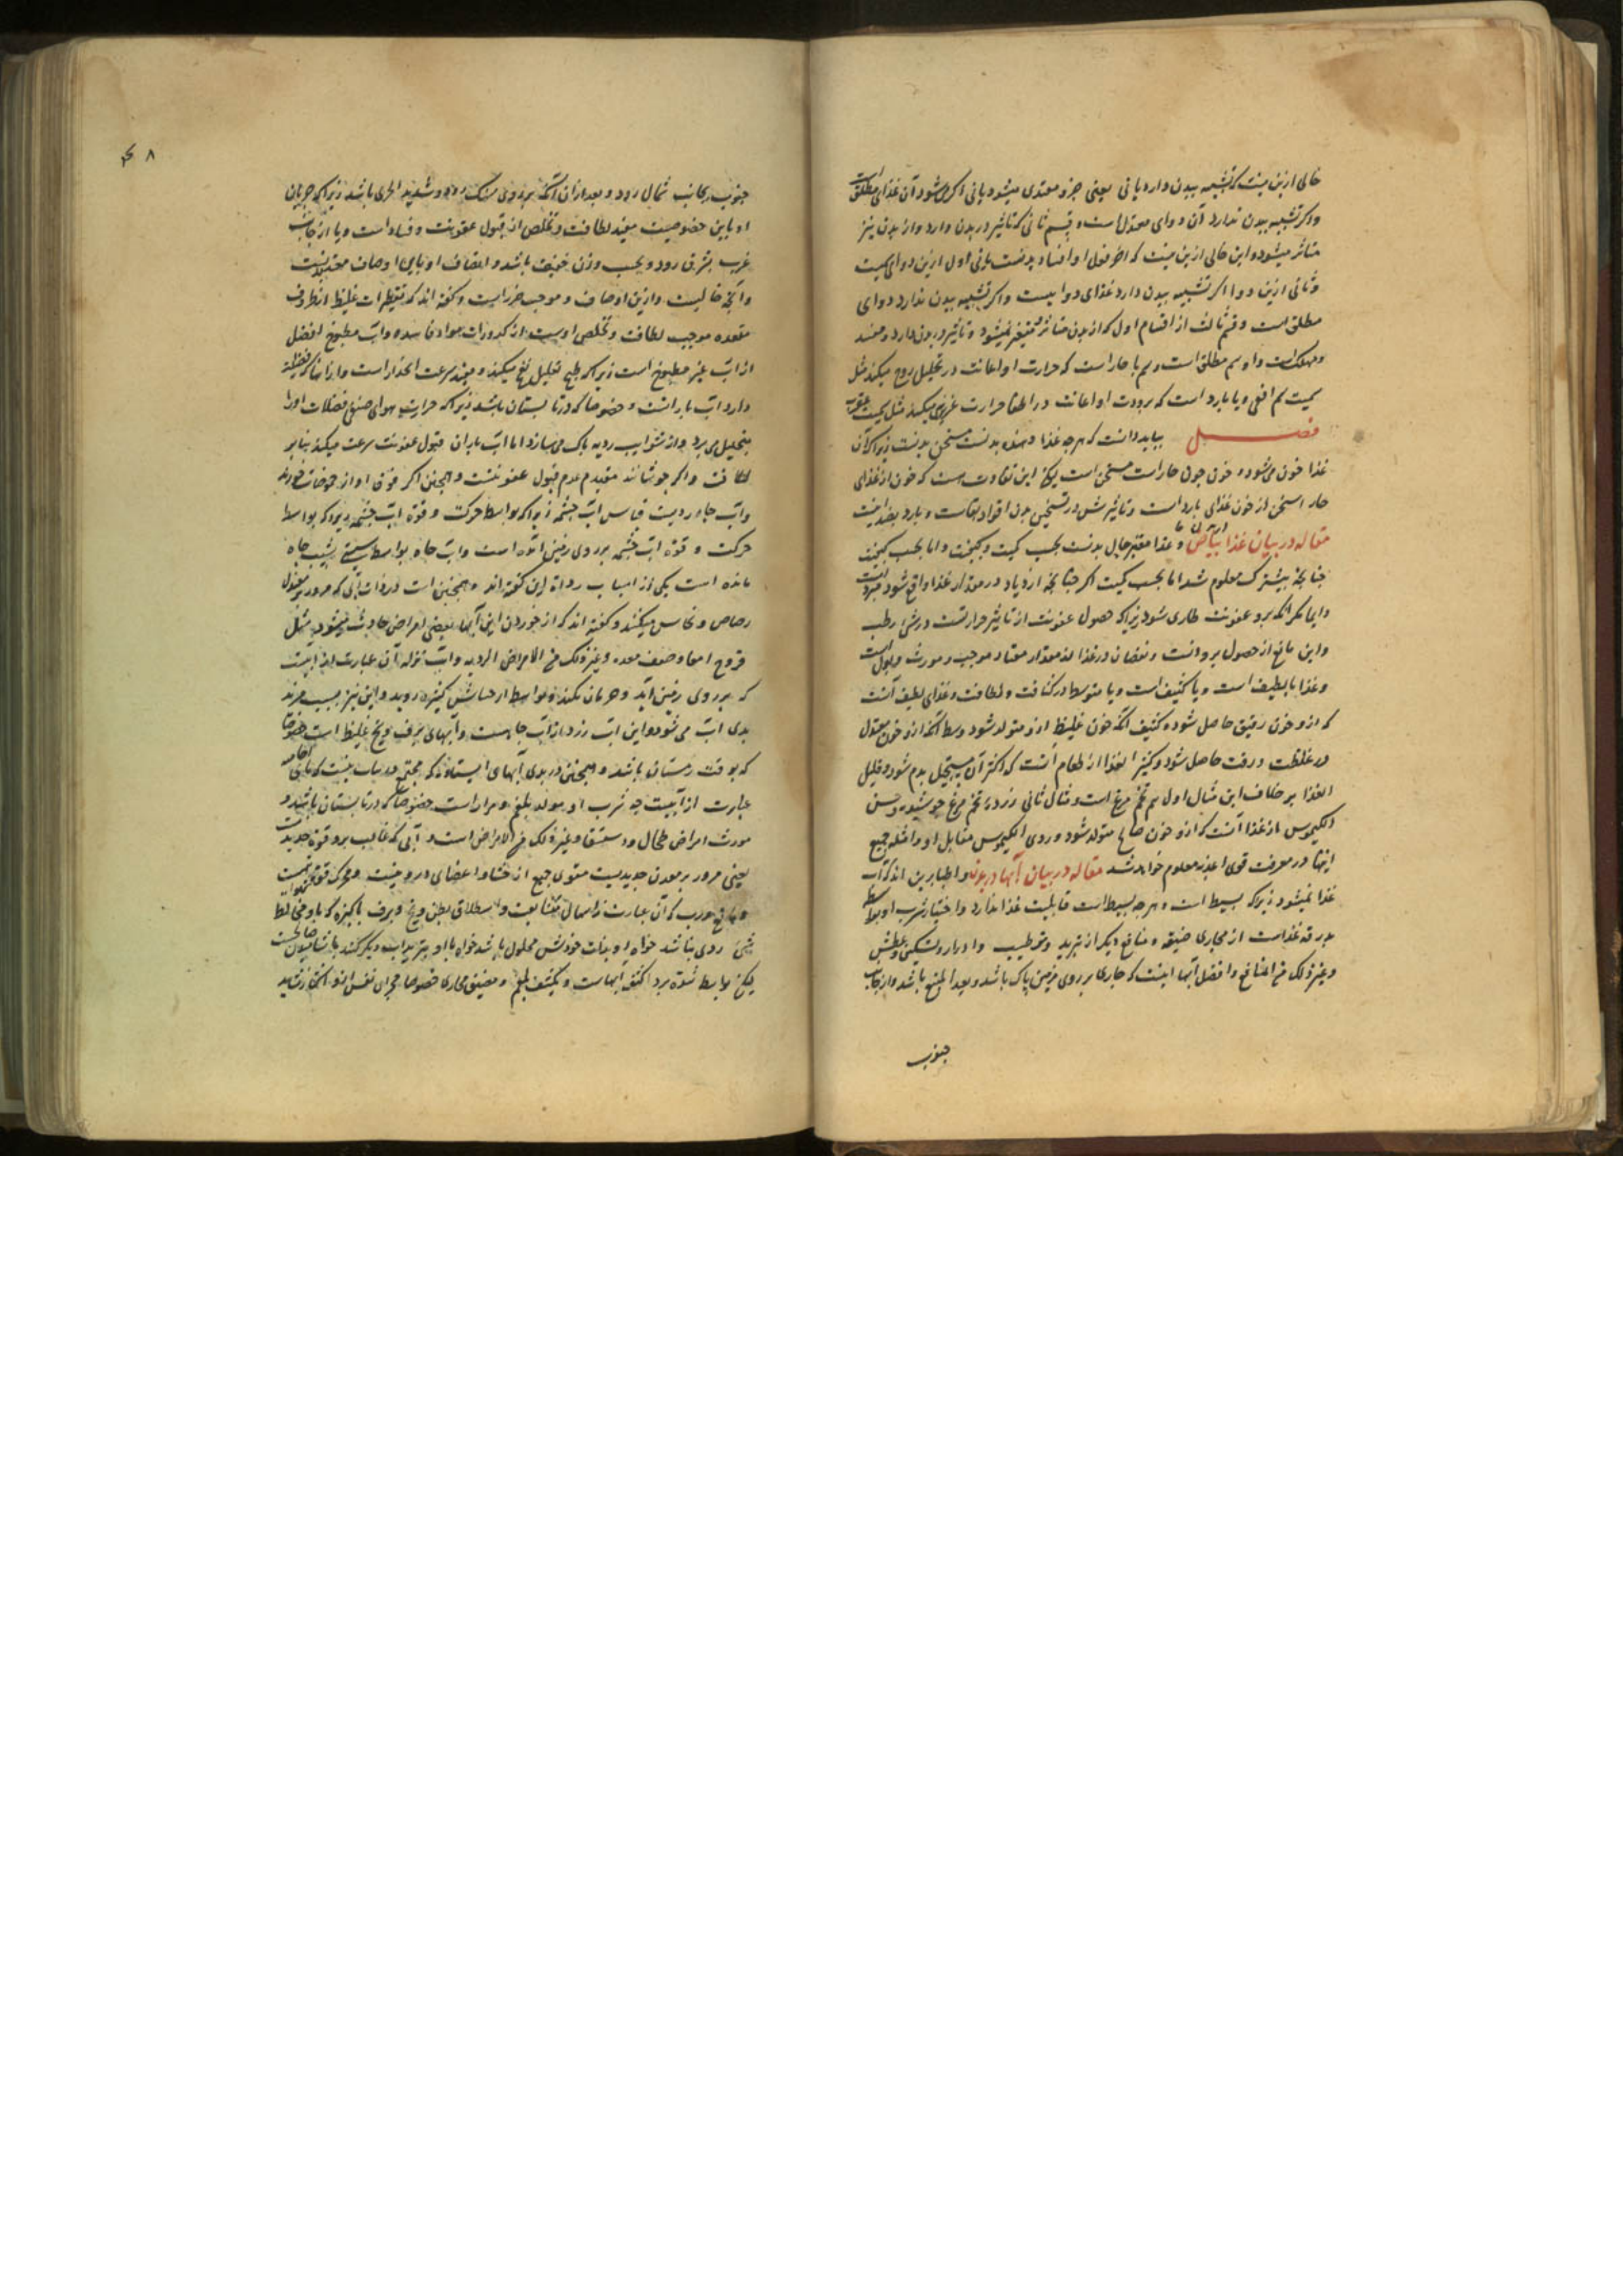 خالی ازین نیست که تشبیه ببدن دارد یا نی یعنی جزو مغتذی میشود یا نی اکر میشود آن غذای مطلق است
واکر تشبیه ببدن ندارد آن دوای معتدل است و قسم ثانی که تاثیر در بدن دارد و از بدن نیز
متاثر میشود و این خالی ازین نیست که آخر فعل او افساد بدنست یا نی اول ازین دوای سمیت
وثانی ازین دو اکر تشبیه ببدن دارد غذای دواییست واکر تشبیه ببدن ندارد دوای
مطلق است و قسم ثالث از اقسام اول که از بدن متاثر و متغیر نمیشود و تاثیر در بدن دارد و مفسد
ومهلک است و او سم مطلق است و سم یا حار است که حرارت او اعانت در تحلیل روح میکند مثل
سمیت سم افعی و یا بارد است که برودت او اعانت در اطفا حرارت غریزی میکند مثل سمیت عقرب
فصل بباید دانست که هرچه غذا دهنده بدنست مسخن بدنست زیرا که آن
غذا خون می شود و خون چون حار است مسخن است لیکن این تفاوت هست که خون از غذای
حار اسخن از خون غذای بارد است و تاثیرش در تسخین بدن اقوا و بقاست و بارد بضد اینست
مقاله در بیان غذا و غذا مغیر حال بدنست بحسب کمیت و کیفیت و اما بحسب کیفیت
چنانچه بیشترک معلوم شد اما بحسب کمیت اکر چنانچه ازدیاد در مقدار غذا واقع شود مبرد است
دایما مکر آنکه برو عفونت طاری شود زیرا که حصول عفونت از تاثیر حرارتست در شیٔ رطب
واین مانع از حصول برودتست و نقصان در غذا از مقدار معتاد موجب و مورث ذبول است
وغذا یا لطیف است و یا کثیف است و یا متوسط در کثافت و لطافت و غذای لطیف آنست
که ازو خون رقیق حاصل شود و کثیف آنکه خون غلیظ ازو متولد شود وسط آنکه ازو خون معتدل
در غلظت و رقت حاصل شود و کثیر الغذا از طعام آنست که اکثر آن مستحیل بدم شود و قلیل
الغذا بر خلاف این مثال اول سم تخم مرغ است و مثال ثانی زرده تخم مرغ جوشیده و حسن
الکیموس از غذا آنست که ازو خون صالح متولد شود و ردی الکیموس مقابل او و امثله جمیع
اینها در معرفت قوی اغذیه معلوم خواهد شد مقاله در بیان آبها و اطبا برین اند که آب
غذا نمیشود زیرا که بسیط است و هرچه بسیط است قابلیت غذا ندارد و احتیاز شرب او بواسطه
بدرقه غذاست از مجاری ضیقه و منافع دیکر از تبرید و ترطیب و ادرار و تسکین عطش
وغیر ذلک من المنافع وافضل آبها اینست که جاری بر روی زمین پاک باشد و بعید المنبع باشد و از جانب
جنوب
۸
جنوب بجانب شمال رود و بعد ازان آنکه بر روی سنک رود و شدید الجری باشد زیرا که جریان
او باین خصوصیت مفید لطافت و تخلص از قبول عفونت و فساد است و یا از جانب
غرب بشرق رود و بحسب وزن خفیف باشد و اتصاف او باین اوصاف معتدلیست
وآنچه خالیست ازین اوصاف موجب ضرر است و کفته اند که تقطیر آب غلیظ از ظروف
متعدده موجب لطافت و تخلص اوست از کدورات مواد فاسده و آب مطبوخ افضل
از آب غیر مطبوخ است زیرا که طبخ تقلیل نفخ میکند و مفید سرعت انحدار است و از آنها که فضیلت
دارد آب بارانست و خصوصا که در تابستان باشد زیرا که حرارت هوای صیفی فضلات او را
بتحلیل می برد و از شوایب ردیه پاک می سازد اما آب باران قبول عفونت بسرعت میکند بنابر
لطافت و اکر جوشانند مفید عدم قبول عفونتست و همچنین اکر فوق او از حموضات خورند
وآب چاه ردیست بقیاس آب چشمه زیرا که بواسطه حرکت و قوة آب چشمه زیرا که بواسطه
حرکت و قوة آب چشمه بر روی زمین آمده است و آب چاه بواسطه سستی بشیب چاه
مانده است یکی از اسباب رداة این کفته اند و همچنین است در ذات آبی که مرور بر معدن
رصاص و نحاس میکند و کفته اند که از خوردن این آبها بعضی امراض حادث میشود مثل
قروح امعا و ضعف معده و غیر ذلک من الامراض الردیه و آب نزله آن عبارت از آبیست
که بر روی زمین آید و جریان نکند و بواسطه او حشایش کثیره روید و این نیز سبب مزید
بدی آب می شود و این آب زرد از آب چاهست و آبهای برف و یخ غلیظ است خصوصا
که بوقت زمستان باشد و همچنین در بدی آبهای ایستاده که
عبارت از آبیست چه شرب او مولد بلغم و مرار است خصوصا که در تابستان باشد و
مورث امراض طحال و استسقا و غیر ذلک من الامراض است و آبی که غالب برو قوة حدیدست
یعنی مرور بر معدن حدیدیست مقوی جمیع احشا و اعضای درونیست و محرک قوة شهوانیست
و مانع ذرب که آن عبارت از اسهال متتابعت و استطلاق بطن و یخ و برف پاکیزه که با او مخالط
شیٔ ردی نباشد خواه او بذات خودش محلول باشد خواه با او تبرید آب دیکر کند یا شاملیون صالحست
لیکن بواسطه شدة برد اکثف آبهاست و مکثف بلغم و مضیق مجاری خصوصا مجرای نفس